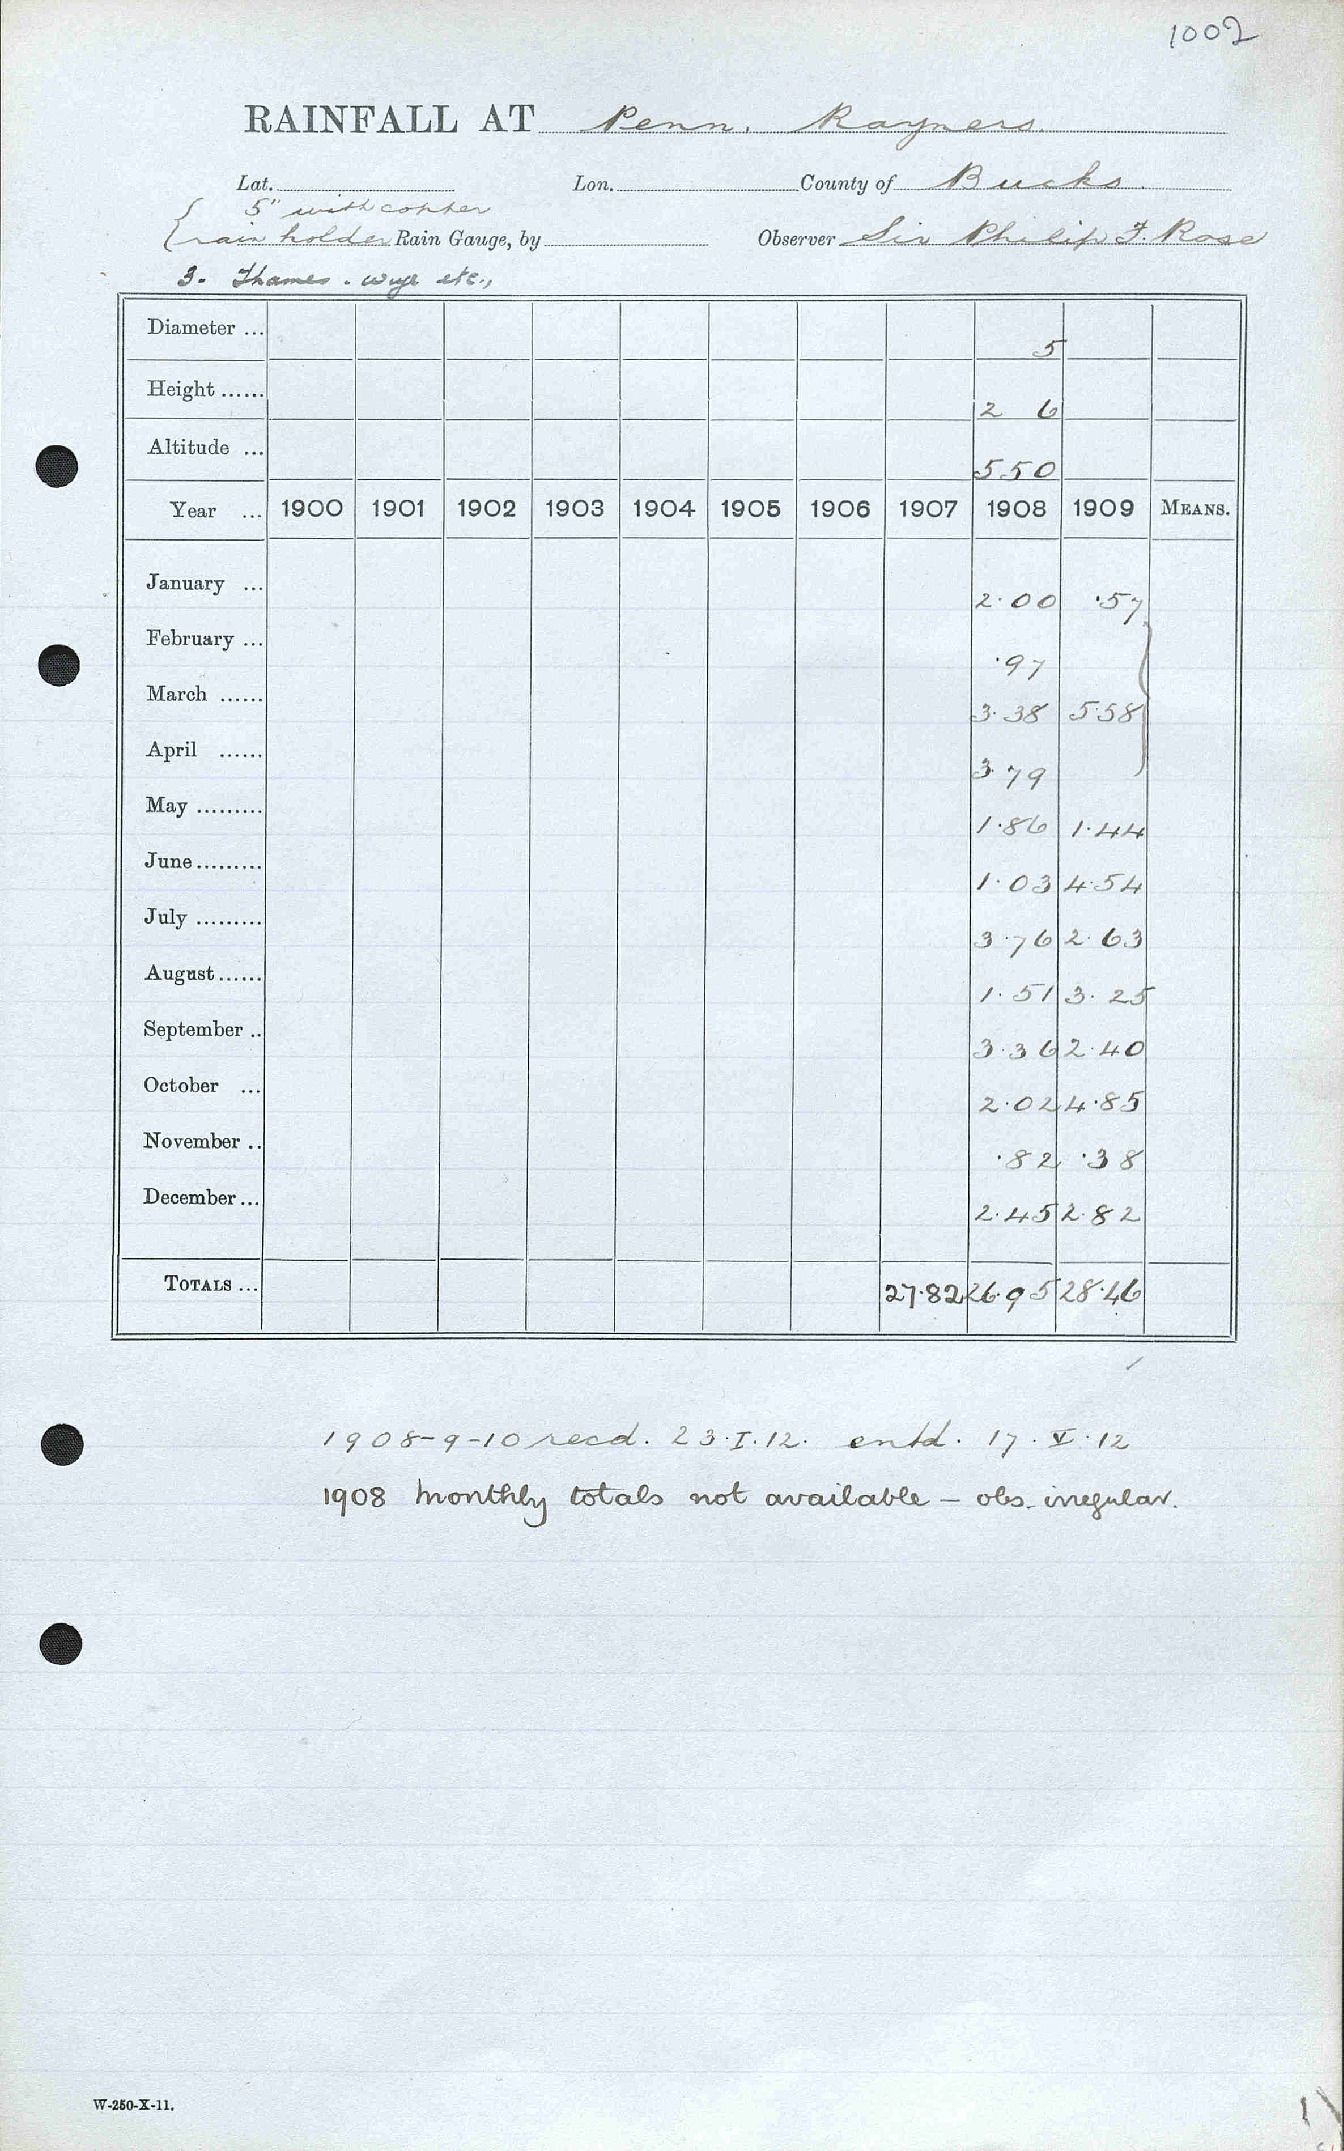 1002
RAINFALL AT Penn. Rayners.
Lat. Lon. County of Bucks.
5" with copper
rain holder Rain Gauge, by Observer Sir Philip F. Rose
3. Thames. Wye etc.,
Diameter ... 5
Height ...... 2 6
Altitude ... 550
Year ... 1900 1901 1902 1903 1904 1905 1906 1907 1908 1909 MEANS.
January ... 2.00 .57
February ... .97
March ...... 3.38 5.58
April ...... 3.79
May ......... 1.86 1.44
June ......... 1.03 4.54
July ......... 3.76 2.63
August ...... 1.51 3.25
September .. 3.36 2.40
October ... 2.02 4.85
November .. .82 .38
December ... 2.45 2.82
TOTALS ... 27.82 26.95 28.46
1908-9-10 recd. 23.I.12. entd. 17.V.12
1908 monthly totals not available – obs. irregular.
W-250-X-11.